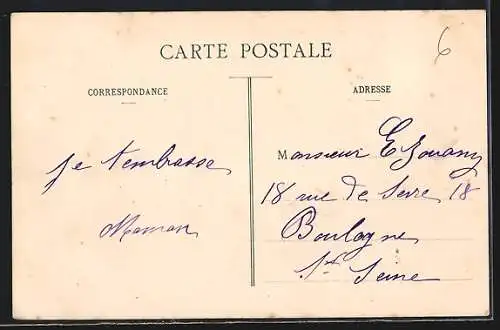 CARTE POSTALE
6
CORRESPONDANCE
ADRESSE
je t'embrasse
Maman
Monsieur E
18 rue de Serres 18
Boulogne
s/ Seine